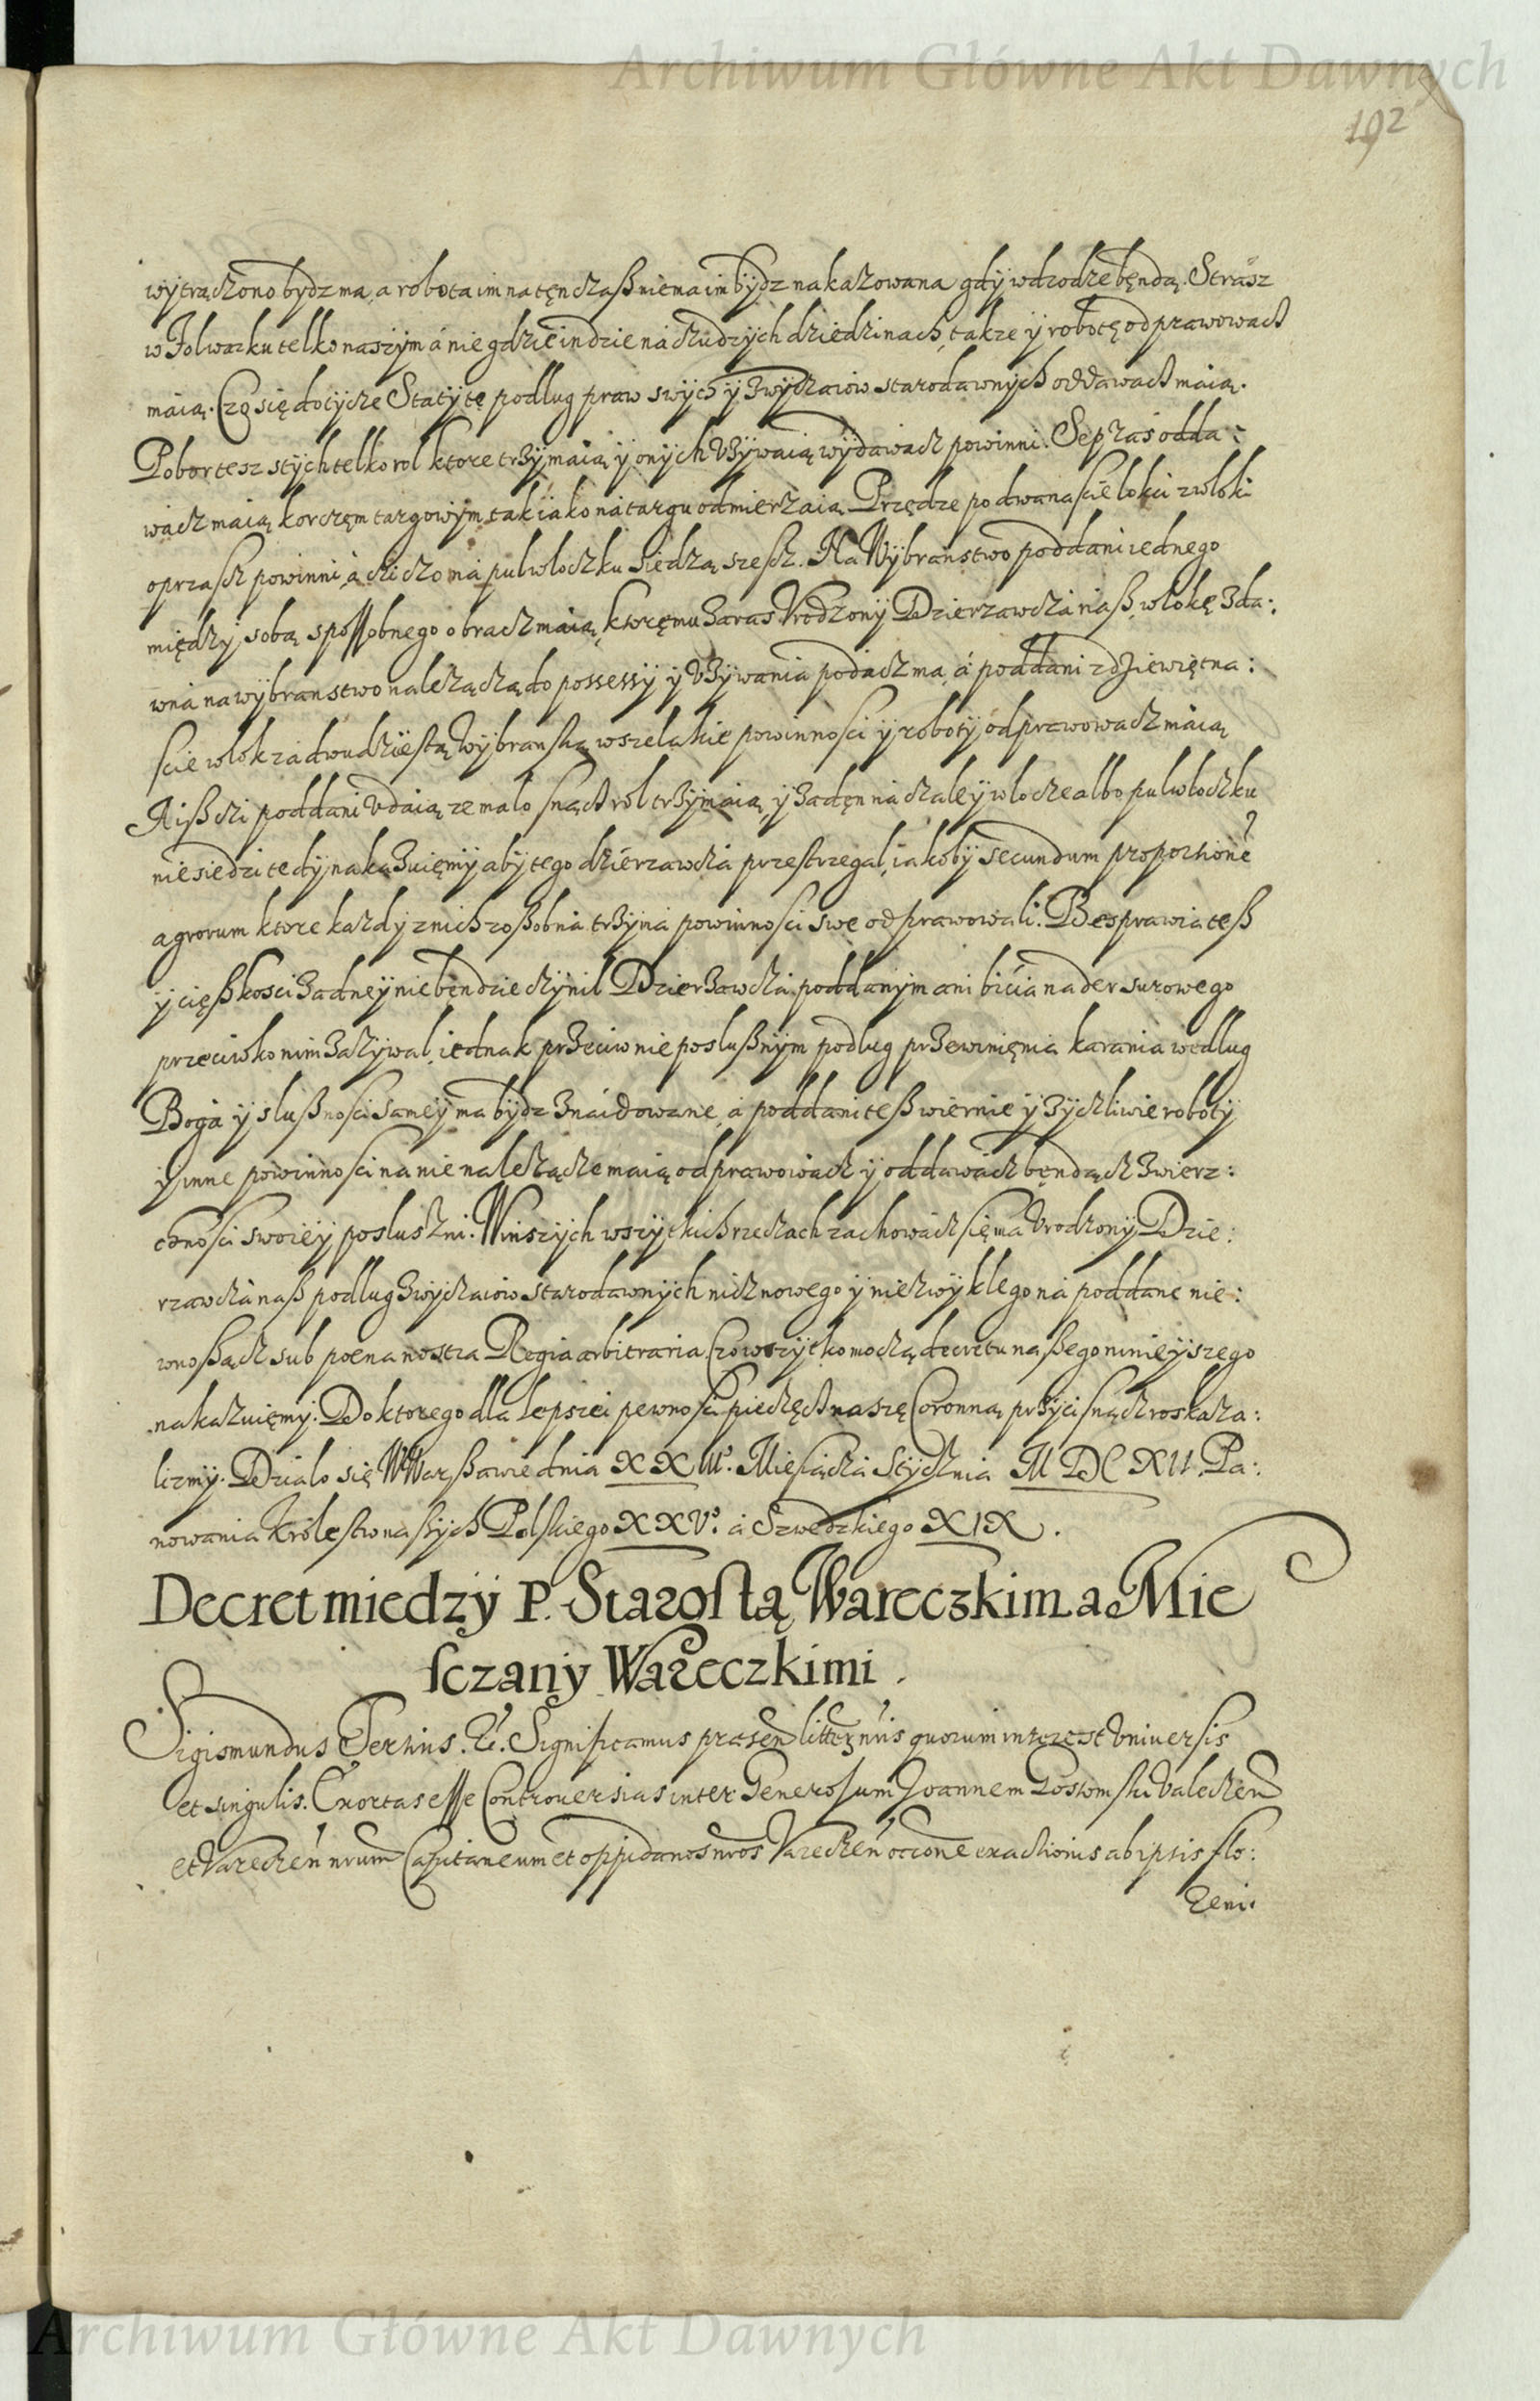 Archiwum Główne Akt Dawnych
192
wytrączono bydz ma, a robota im na tęn czaß nie ma im bydz nakazowana gdy w drodze bęndą. Strasz
w Folwarku telko naszym á nie gdzie indzie ná czudzych dziedzinach, takze y robotę odprawowacz
maią. Czo się dotycze Staty tę podlug praw swych y zwyczaiow starodawnych oddawacz maią.
Pobor tesz s tych telko rol ktore trzymaią y onych używaią wydawacz powinni. Sep zás odda:
wacz maią korczęm targowym tak iako ná targu odmierzaią Przędze po dwanascie lokci z wloki
oprascz powinni, á czi czo ná pulwloczku siedzą szescz. Na Wybranstwo poddani iednego
między sobą sposobnego obracz maią, ktoręmu zaras Urodzony Dzierzawcza naß, wlokę zda:
wna na wybranstwo należączą do possessy y używania podacz ma, á poddani z dziewiętna:
scie wlok za dwudziestą Wybranską wszelakie powinnosci y roboty odprawowacz maią
A iß czi poddani udaią ze malo snacz rol trzymaią, y żadęn ná czaley wlocze albo pulwloczku
nie siedzi tedy nakazuięmy aby tego dzierzawcza przestrzegal, iakoby secundum proportionē
agrorum ktore kazdy z nich zoßobna trzyma powinnosci swe odprawowali. Besprawia teß
y cięßkosci żadney nie bęndzie czynil Dzierżawcza poddanym ani bicia nader surowego
przeciwko nim zazywal, iednak przeciw nieposlußnym podlug przewinięnia karania wedlug
Boga y slußnosci samey ma bydz znaidowane, a poddani teß wiernie y zyczliwie roboty
y inne powinnosci na nie należącze maią odprawowacz y oddawacz bęndącz zwierz:
chnosci swoiey poslużni. W inszych wszytkich rzeczach zachowacz się ma Urodzony Dzie:
rzawcza naß podlug zwyczaiow starodawnych nicz nowego y niezwyklego ná poddane nie:
wnoßącz sub poena nostra Regia arbitraria Czo wszytko moczą decretu naßego ninieyszego
nakazuięmy. Do ktorego dla lepszei pewnosci pieczęcz naszę Coronną przycisnącz roskaza:
lizmy. Dzialo się W Warßawie dnia XXIII. Miesiącza Stycznia M DC XII. Pa:
nowania Krolestw naßych Polskiego XXV. á Szwedzkiego XIX.
Decret miedzy P. Starostą Wareczkim a Mie
sczany Wareczkimi.
Sigismundus Tertius. &. Significamus praesen litter nris quorum interest Universis
et singulis. Exortas esse Controversias inter Generosum Joannem Gostomski Valeczen
et Vareczen nrum Capitaneum et oppidanos nros Vareczen occone exactionis ab ipsis flo:
reni
Archiwum Główne Akt Dawnych